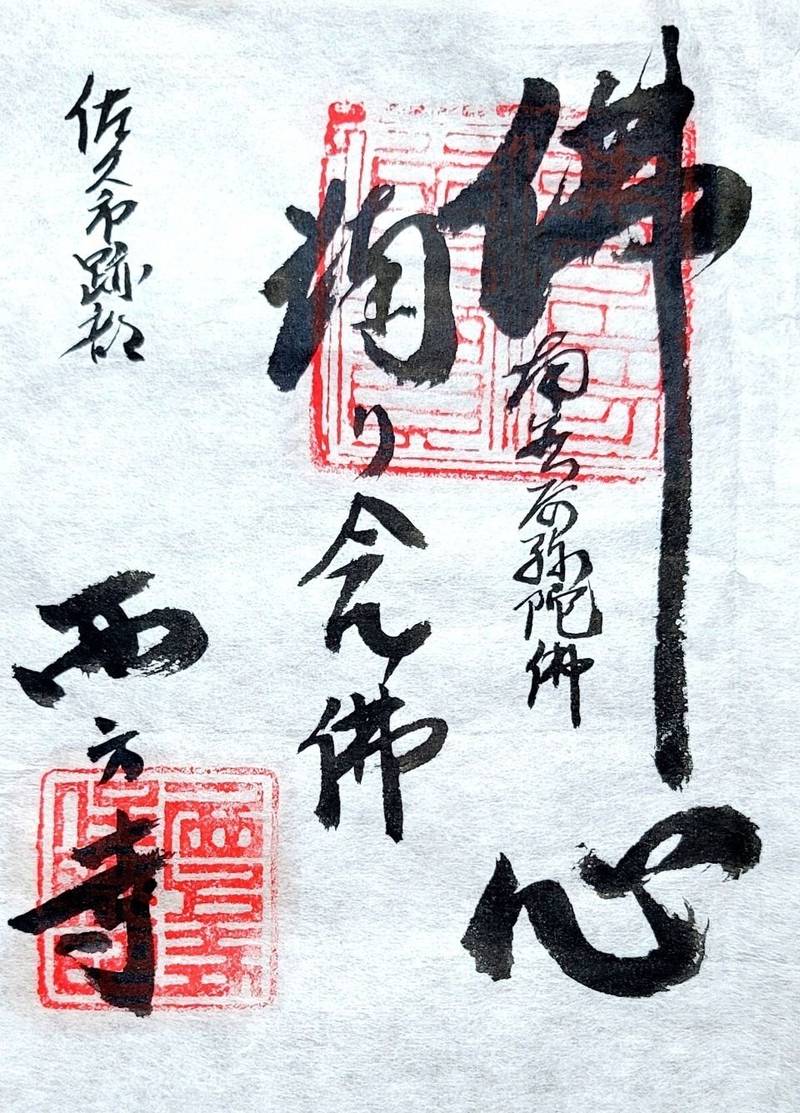 佛心
南無阿弥陀佛
踊り念佛
佐久市跡部
西方寺